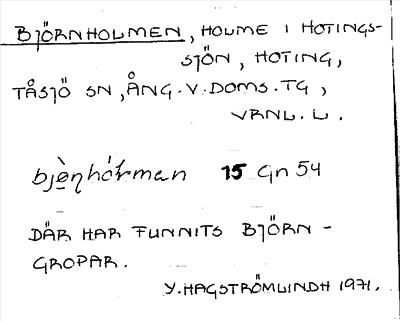 BJÖRNHOLMEN, HOLME I HOTINGS-
SJÖN, HOTING,
TÅSJÖ SN, ÅNG. V. DOMS. TG,
VRNL. L.
15 Gn 54
DÄR HAR FUNNITS BJÖRN-
GROPAR.
Y. HAGSTRÖMLINDH 1971.